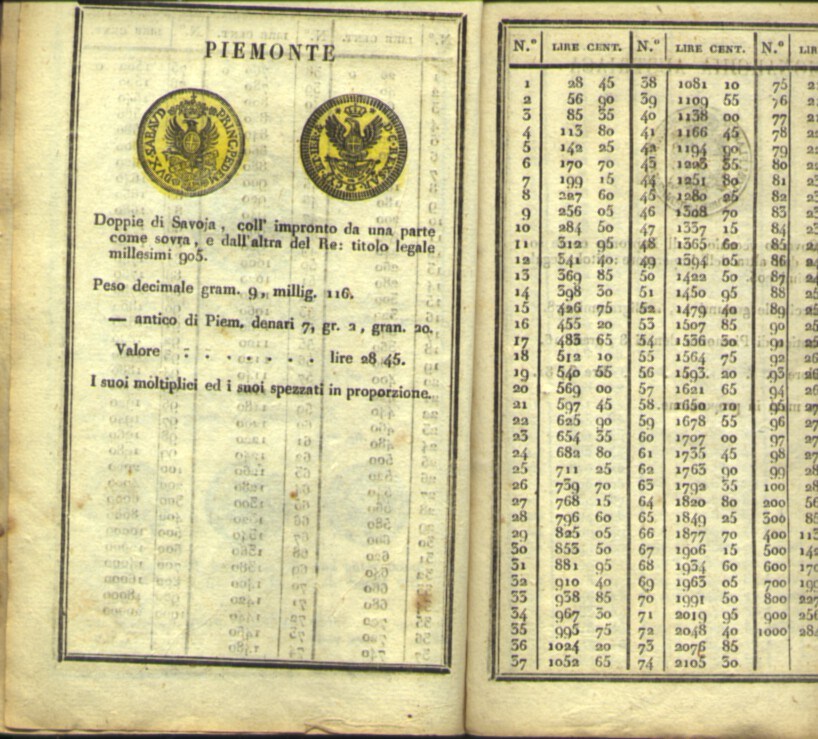 PIEMONTE
DVX SABAVD PRINC PEDEM
Doppie di Savoja , coll' impronto da una parte
come sovra , e dall'altra del Re: titolo legale
millesimi 905.
Peso decimale gram. 9, millig. 116.
— antico di Piem. denari 7, gr. 2 , gran. 20.
Valore . . . . . . . lire 28 45.
I suoi moltiplici ed i suoi spezzati in proporzione.
N.° LIRE CENT. N.° LIRE CENT. N.°
1 28 45 38 1081 10 75
2 56 90 39 1109 55 76
3 85 35 40 1138 00 77
4 113 80 41 1166 45 78
5 142 25 42 1194 90 79
6 170 70 43 1223 35 80
7 199 15 44 1251 80 81
8 227 60 45 1280 25 82
9 256 05 46 1308 70 83
10 284 50 47 1337 15 84
11 312 95 48 1365 60 85
12 341 40 49 1394 05 86
13 369 85 50 1422 50 87
14 398 30 51 1450 95 88
15 426 75 52 1479 40 89
16 455 20 53 1507 85 90
17 483 65 54 1536 30 91
18 512 10 55 1564 75 92
19 540 55 56 1593. 20 93
20 569 00 57 1621 65 94
21 597 45 58 1650 10 95
22 625 90 59 1678 55 96
23 654 35 60 1707 00 97
24 682 80 61 1735 45 98
25 711 25 62 1763 90 99
26 739 70 63 1792 35 100
27 768 15 64 1820 80 200
28 796 60 65 1849 25 300
29 825 05 66 1877 70 400
30 853 50 67 1906 15 500
31 881 95 68 1934 60 600
32 910 40 69 1963 05 700
33 938 85 70 1991 50 800
34 967 30 71 2019 95 900
35 995 75 72 2048 40 1000
36 1024 20 73 2076 85
37 1052 65 74 2105 30